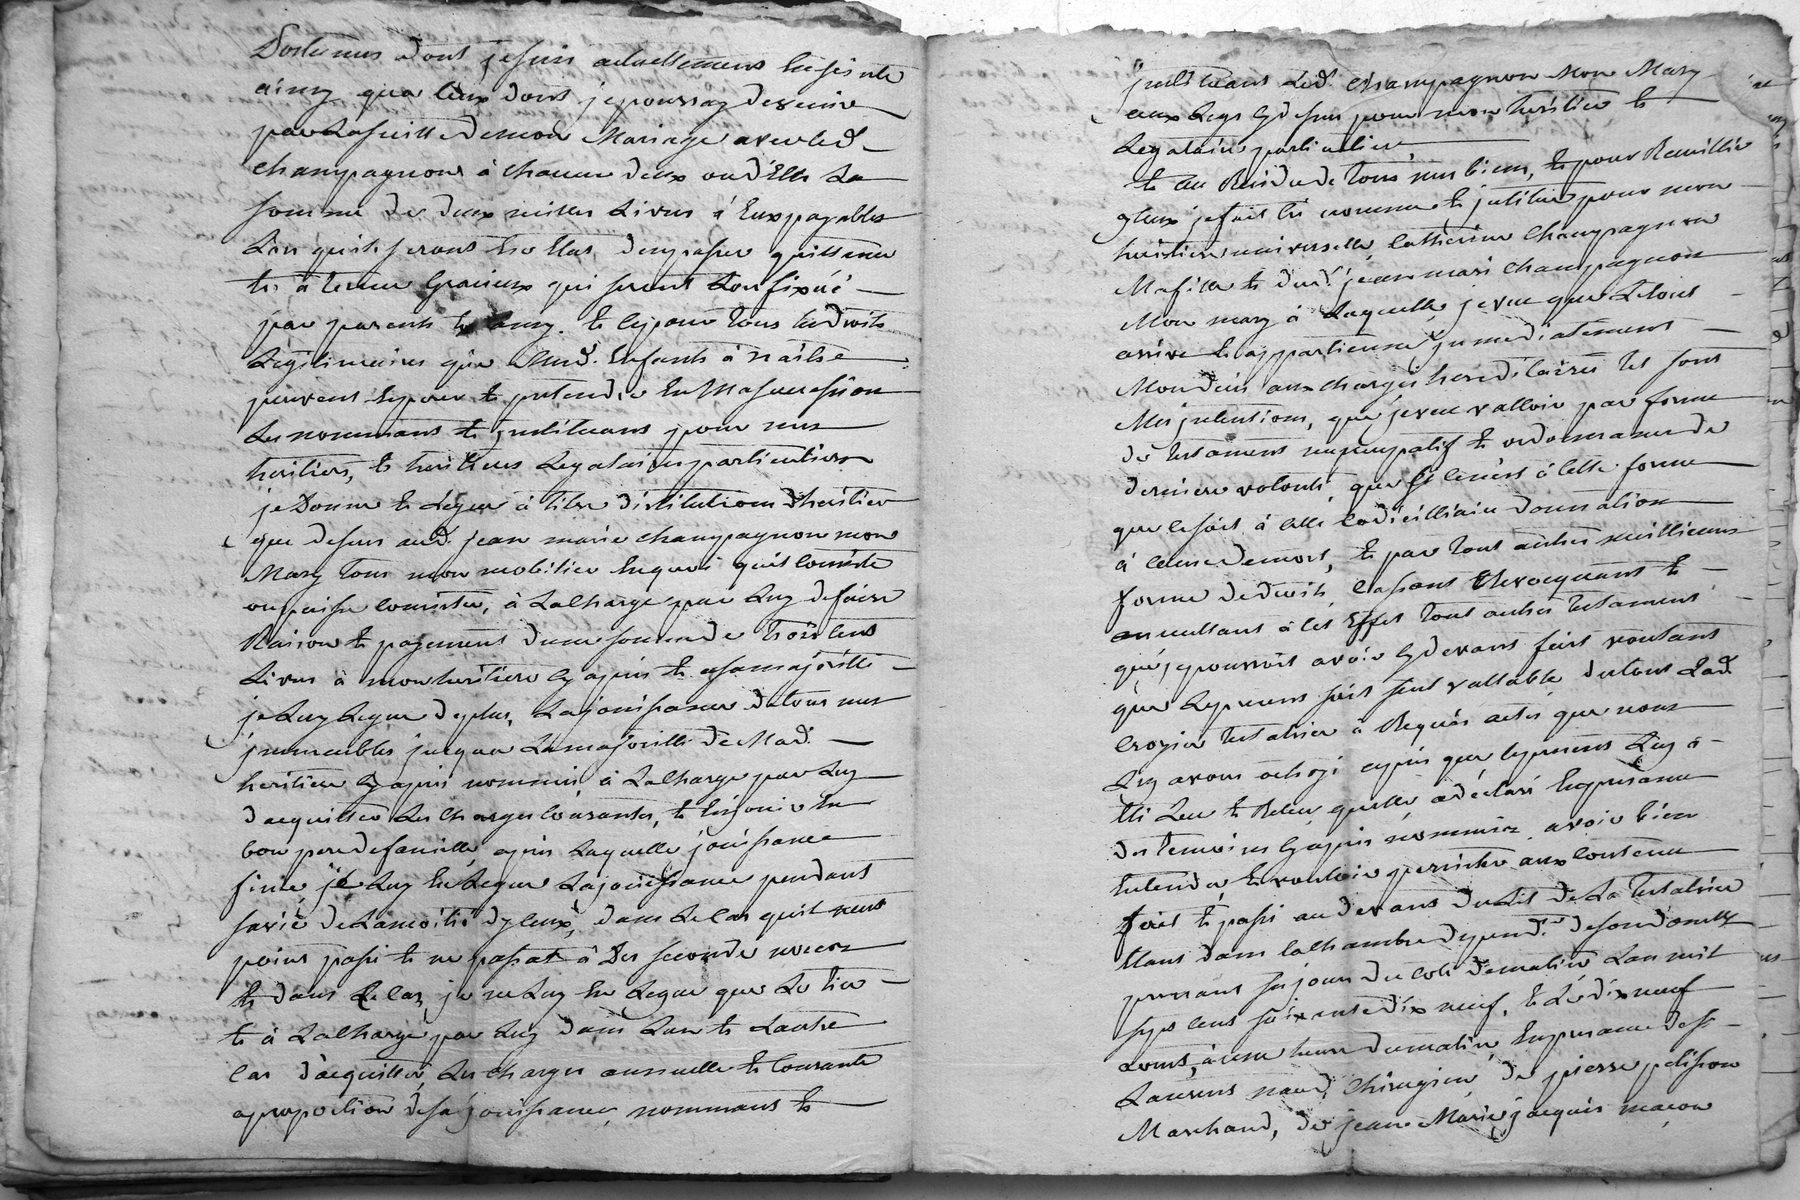 Postumes dont je suis actuellement Enseinte
ainsy que Ceux dont je pourray devenir
par La suitte de mon Mariage avec led.
champagnon à chacun d'eux ou d'Elle La
somme de deux milles Livres à Eux payables
Lors qu'ils seront En Etas d'en passer quittance
Et à terme Gracieux qui seront Lors fixéé
par parents Et amy. Et ce pour tous les droits
Légitimaires que Mesd. Enfants à naitre
peuvent Esperer Et pretendre En Ma succession
Les nommans Et jnstituans pour mes
heritiers, Et heritieres Legataires particuliers
je Donne Et Légue à titre d'institution d'heritier
que dessus aud. jean marie champagnon mon
Mary tous mon mobilier En quoi qu'il consiste
ou puisse consister, à La charge par Luy de faire
Raison Et payement d'une somme de trois Cent
Livres à mon heritiere cy après Et à sa majorité
je Luy Legue de plus, La jouissance de tous mes
jmmeubles jusques La majorité de Mad.
heritiere cy après nommée à La charge par Luy
d'acquitter Les Charges Courantes, Et En jouir En
bon pere de famille, après Laquelle jouissance
finie, je Luy En Legue La jouissance pendant
sa vie de La moitié d'yceux, dans Le cas qu'il n'eut
point passé Et ne passat à Des seconde noces
Et dans Ce Cas, je ne Luy En Legue que Le tier
Et à La charge par Luy dans L'un Et L'autre
Cas d'acquitter Les charges annuelle Et Courante
a proportion de sa jouissance, nommant Et
jnstituant Led. Champagnon Mon Mary
aux Legs cy dessus pour mon heritier Et
Legataire particulier
Et au Residu de tous mes biens, Et pour Recueillir
yceux je fait Et nomme Et jnstitue pour mon
heritiere universelle, Catherine Champagnon
Ma fille Et dud. jean marie Champagnon
Mon mary à Laquelle je veu que Letout
arrive Et appartienne jmmediatement
Mon decès aux charges hereditaires tel sont
Mes jntentions, que je veu valloir par forme
de testament nuncupatif Et ordonnance de
derniere volonté, que si Ce n'est à Cette forme
que Ce soit à Celle Codicilliaire donnation
à Cause de mort, Et par tout autres meillieures
forme de droit, Cassant Revocquant Et
anullant à Cet Effet tout autres testament
que je pourrois avoir cy devant fait voulant
que Le present soit seul vallable du tout Lad.
Crozier testatrice à Requis actes que nous
Luy avons octroyé après que Le present Luy à
Eté Leu Et Releu, qu'elle à déclaré En presance
des temoins cy après nommés avoir bien
Entendu, Et vouloir persister aux Contenu
fait Et passé au devant du Lit de La testatrice
Etant dans La chambre depend.te de son domicille
prenant son jour du Coté de matin L'an mil
sept Cent soixante dix neuf, Et Le dix neuf
aoust, à une heure du matin, En presance de sr
Laurent naud, Chirugien, de pierre pelisson
Marchand, de jean Marie jacquis maçon